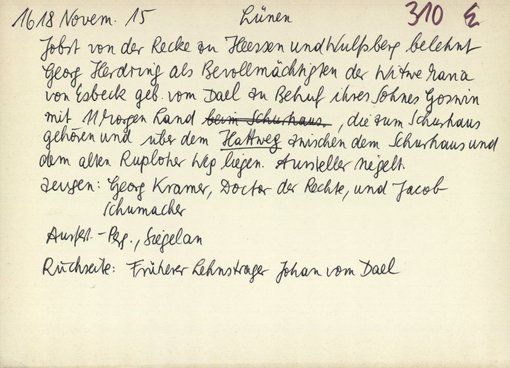 1618 Novem. 15 Lünen 310 E
Jobst von der Recke zu Heessen und Wulfsberg belehnt
Georg Herdring als Bevollmächtigten der Witwe Anna
von Esbeck geb. vom Dael zu Behuf ihres Sohnes Goswin
mit 11 Morgen Land beim Schurhaus, die zum Schurhaus
gehören und über dem Hattweg zwischen dem Schurhaus und
dem alten Ruploher Weg liegen. Aussteller siegelt.
Zeugen: Georg Kramer, Doctor der Rechte, und Jacob
Schumacher
Ausf.-Perg., Siegel an
Rückseite: Früherer Lehnsträger Johan vom Dael